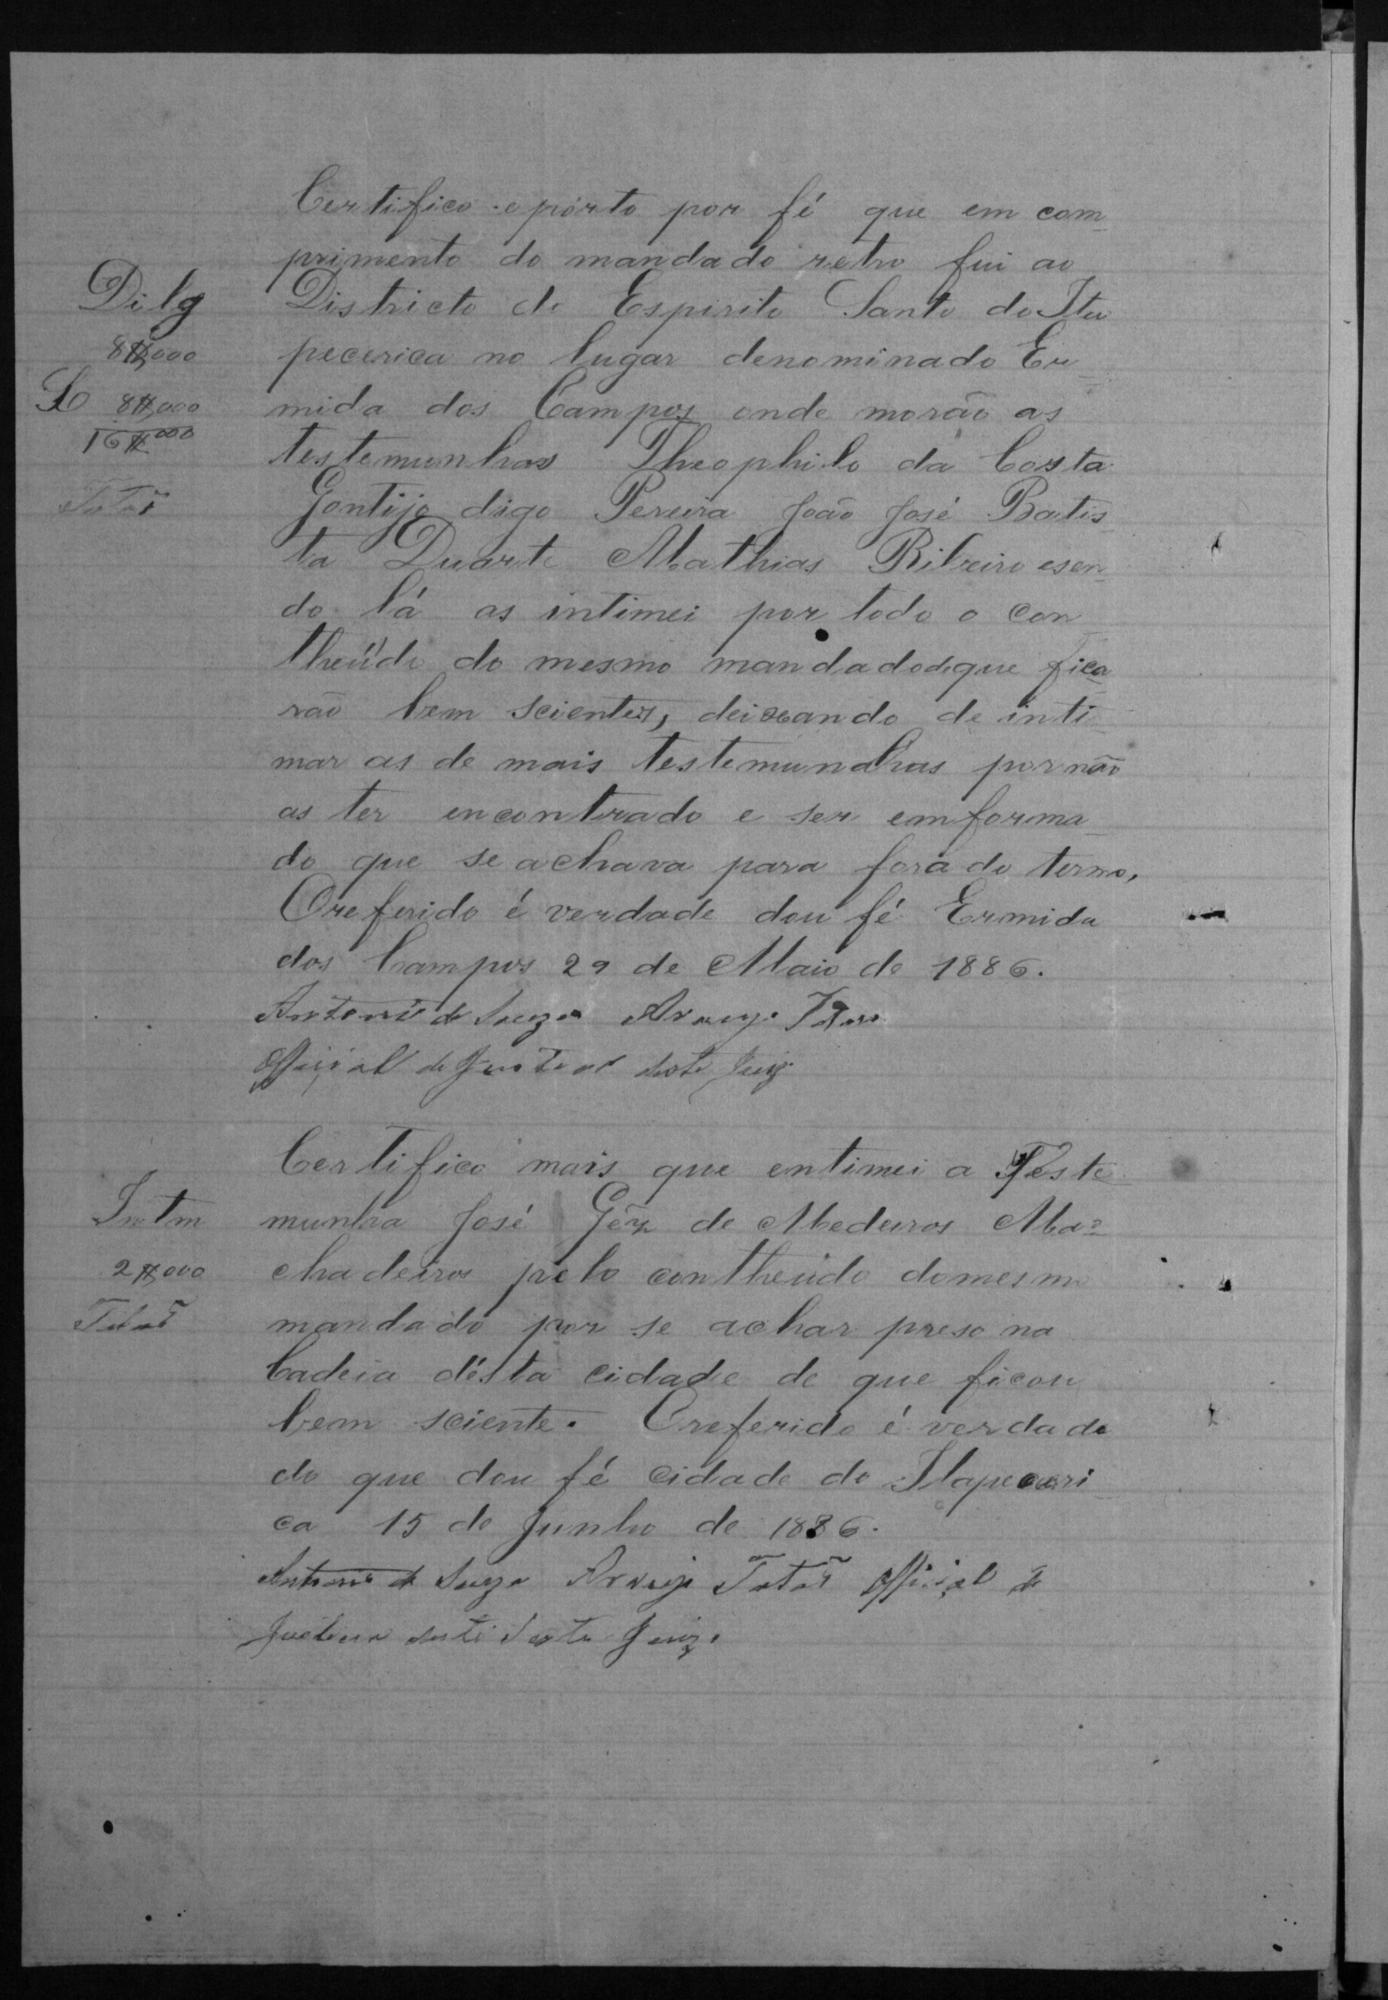 Certifico e pórto por fé que em com
primento do mandado retro fui ao
Dilg
Districto do Espirito Santo do Ita
8$000
pecerica no lugar denominado Er
L 8$000
mida dos Campos onde morão as
16$000
testemunhas Theophilo da Costa
Tatão
Gontijo digo Pereira João José Batis
ta Duarte Mathias Ribeiro e sen
do lá as intimei por todo o con
theúdo do mesmo mandado de que fica
rão bem scientes, deixando de inti
mar as de mais testemunhas por não
as ter encontrado e ser emforma
do que se achava para fóra do termo,
O referido é verdade dou fé Ermida
dos Campos 29 de Maio de 1886.
Antonio de Souza Araujo Tatão
Official de Justiça deste Juiz
Certifico mais que entimei a Teste
Intm
munha José Gez de Medeiros Ma
2$000
chadeiros pelo contheúdo do mesmo
Tatão
mandado por se achar preso na
Cadeia désta cidade de que ficou
bem sciente. O referido é verdade
do que dou fé cidade do Itapeceri
ca 15 de Junho de 1886.
Antonio de Souza Araujo Tatão Official de
Justiça deste Juiz.